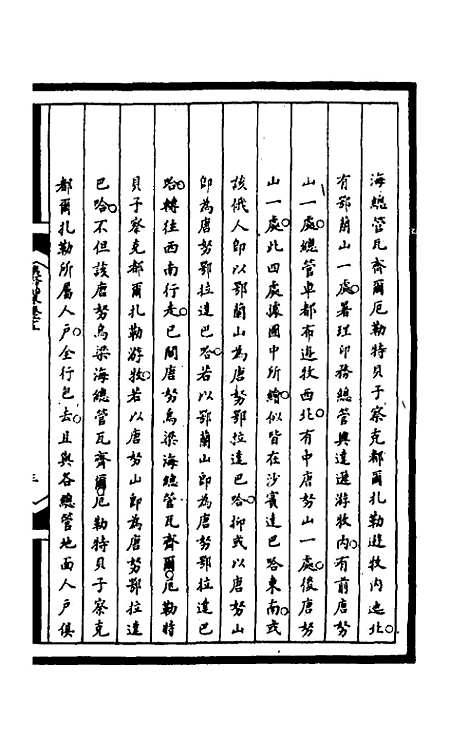 海總管瓦齊爾厄勒特貝子察克都爾扎勒遊牧內迤北。
有鄂蘭山一處。署理印務總管與達遜游牧內。有前唐努
山一處。總管卓都布遊牧西北。有中唐努山一處。後唐努
山一處。此四處。據圖中所繪。似皆在沙賓達巴哈東南。或
該俄人即以鄂蘭山為唐努鄂拉達巴哈。抑或以唐努山
即為唐努鄂拉達巴哈。若以鄂蘭山即為唐努鄂拉達巴
哈。轉往西南行走。已間唐努烏梁海總管瓦齊爾。厄勒特
貝子察克都爾扎勒游牧。若以唐努山即為唐努鄂拉達
巴哈。不但該唐努烏梁海總管瓦齊爾。厄勒特貝子察克
都爾扎勒所屬人戶。全行包去。且與各總管地面人戶俱